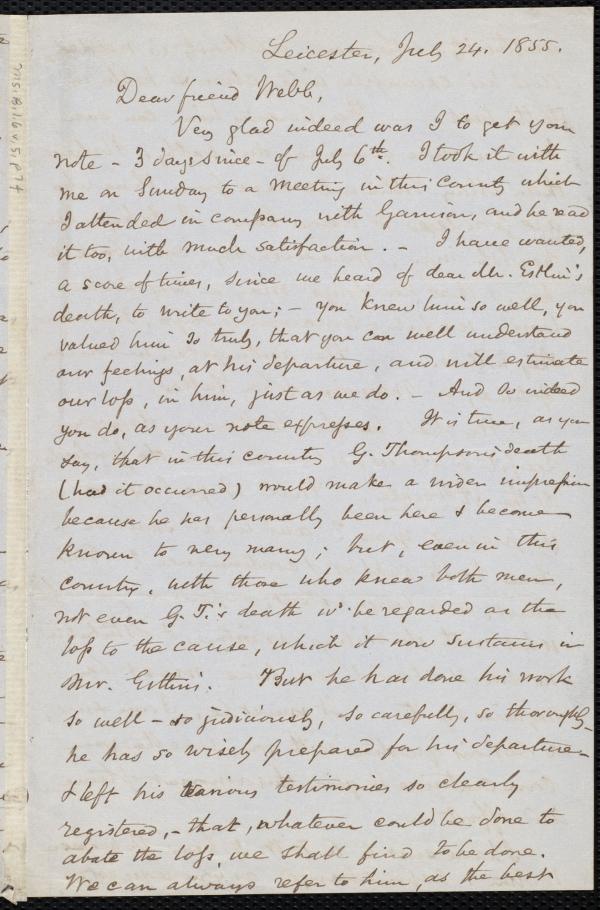 Leicester, July 24. 1855.
Dear friend Webb,
Very glad indeed was I to get your
note - 3 days since - of July 6th. I took it with
me on Sunday to a meeting in this County which
I attended in company with Garrison, and he read
it too, with much satisfaction. - I have wanted,
a score of times, since we heard of dear Mr. Estlin's
death, to write to you; - you knew him so well, you
valued him so truly, that you can well understand
our feelings, at his departure, and will estimate
our loss, in him, just as we do. - And so indeed
you do, as your note expresses. It is true, as you
say, that in this country G. Thompson's death
(had it occurred) would make a wider impression
because he has personally been here & become
known to very many; but, even in this
country, with those who knew both men,
not even G. T.'s death wd. be regarded as the
loss to the cause, which it now sustains in
Mr. Estlin's. But he has done his work
so well - so judiciously, so carefully, so thoroughly-
he has so wisely prepared for his departure-
& left his various testimonies so clearly
registered, - that, whatever could be done to
abate the loss, we shall find to be done.
We can always refer to him, as the best
Ms. B. 1.6 v. 5, p. 74